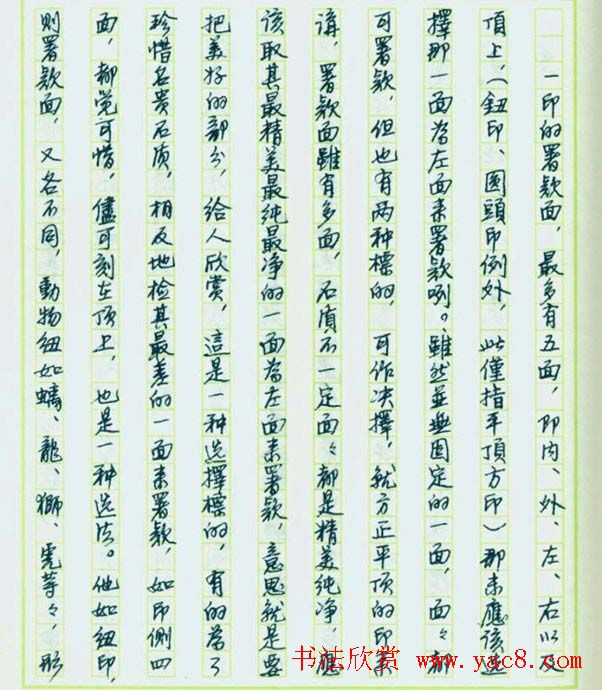 一印的署款面，最多有五面，即内、外、左、右以及
頂上，（鈕印、圓頭印例外，此僅指平頂方印）那末應該選
擇那一面為左面來署款咧。雖然並無固定的一面，面々都
可署款，但也有两种標的，可作决擇，就方正平頂的印來
講，署款面雖有多面，石质不一定面々都是精美纯净，應
该取其最精美最纯最净的一面為左面來署款，意思就是要
把美好的部分，给人欣赏，這是一种选擇標的，有的為了
珍惜名贵石质，相反地检其最差的一面來署款，如印側四
面，都觉可惜，儘可刻在頂上，也是一种选法。他如纽印，
则署款面，又各不同，動物纽如螭、龍、獅、虎等々，形
书法欣赏 www.yac8.com